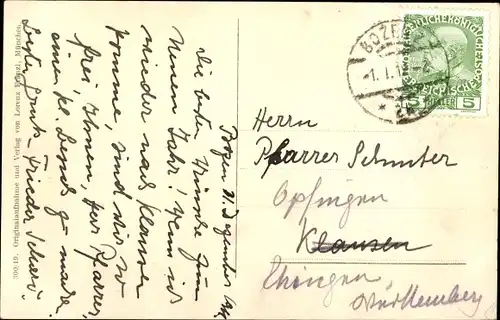 Bozen 31. Dezember
Die besten Wünsche zum
Neuen Jahr! Wenn ich
wieder nach Klausen
komme, sind wir so
frei, Ihnen, Herr Pfarrer,
einen kl. Besuch zu machen.
Frieda
300/19. Originalaufnahme und Verlag von Lorenz Fränzl, München.
BOZEN
1. I. 1
KAISERLICHE KÖNIGLICHE ÖSTERREICHISCHE POST
5 HELLER 5
Herrn
Pfarrer Schuster
Opfingen
Klausen
Ehingen
Württemberg